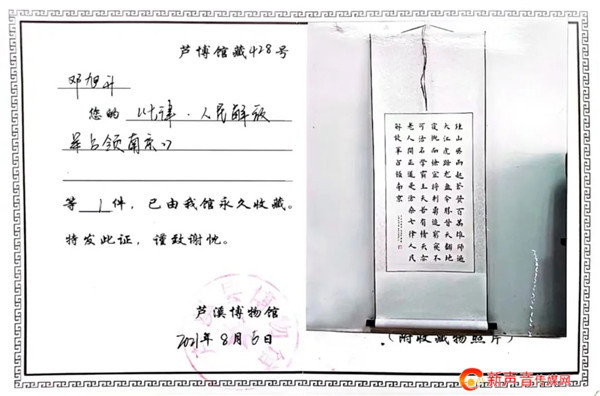 芦博馆藏428号
邓旭升
您的《七律·人民解放
军占领南京》
等1件,已由我馆永久收藏。
特发此证,谨致谢忱。
芦溪博物馆
2021年8月6日
鍾山風雨起蒼黃百萬雄師過
大江虎踞龍盤今勝昔天翻地
覆慨而慷宜將剩勇追窮寇不
可沽名學霸王天若有情天亦
老人間正道是滄桑七律人民
解放軍占領南京
(附收藏物照片)
新声音传媒网